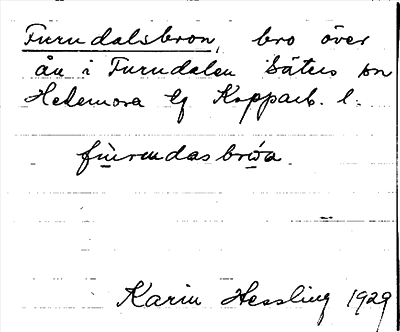 Furudalsbron, bro över
ån i Furudalen Säters sn
Hedemora tg Kopparb. l.
Karin Hessling 1929